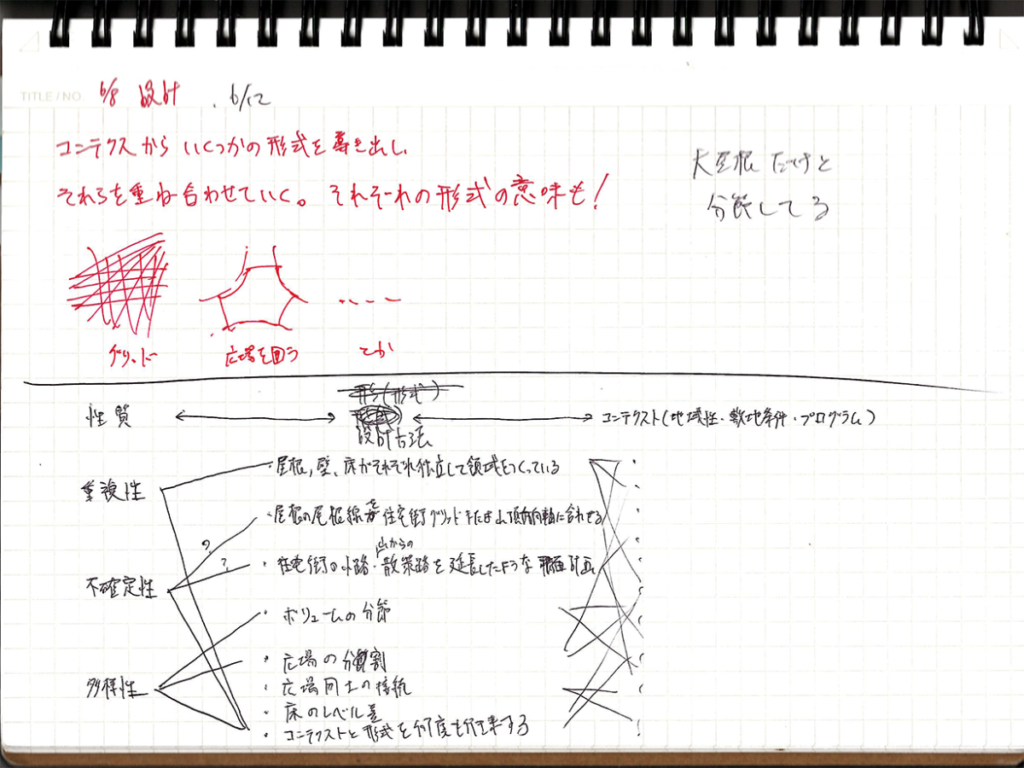 TITLE / NO. 6/8 設計 . 6/12
コンテクスから いくつかの形式を導き出し、
それらを重ね合わせていく。それぞれの形式の意味も!
大屋根 だけど
分節してる
グリッド
広場を囲う
とか
形(形式)
性質
設計方法
コンテクスト(地域性・敷地条件・プログラム)
重複性
・屋根、壁、床がそれぞれ独立して領域をつくっている
・屋根の尾根線を住宅街グリッド 山頂方向軸に合わせる
?
山からの
?
・住宅街の小路・散策路を延長したような 計画
不確定性
・ボリュームの分節
・広場の分割
多様性
・広場同士の接続
・床のレベル差
・コンテクストと形式を何度も往来する